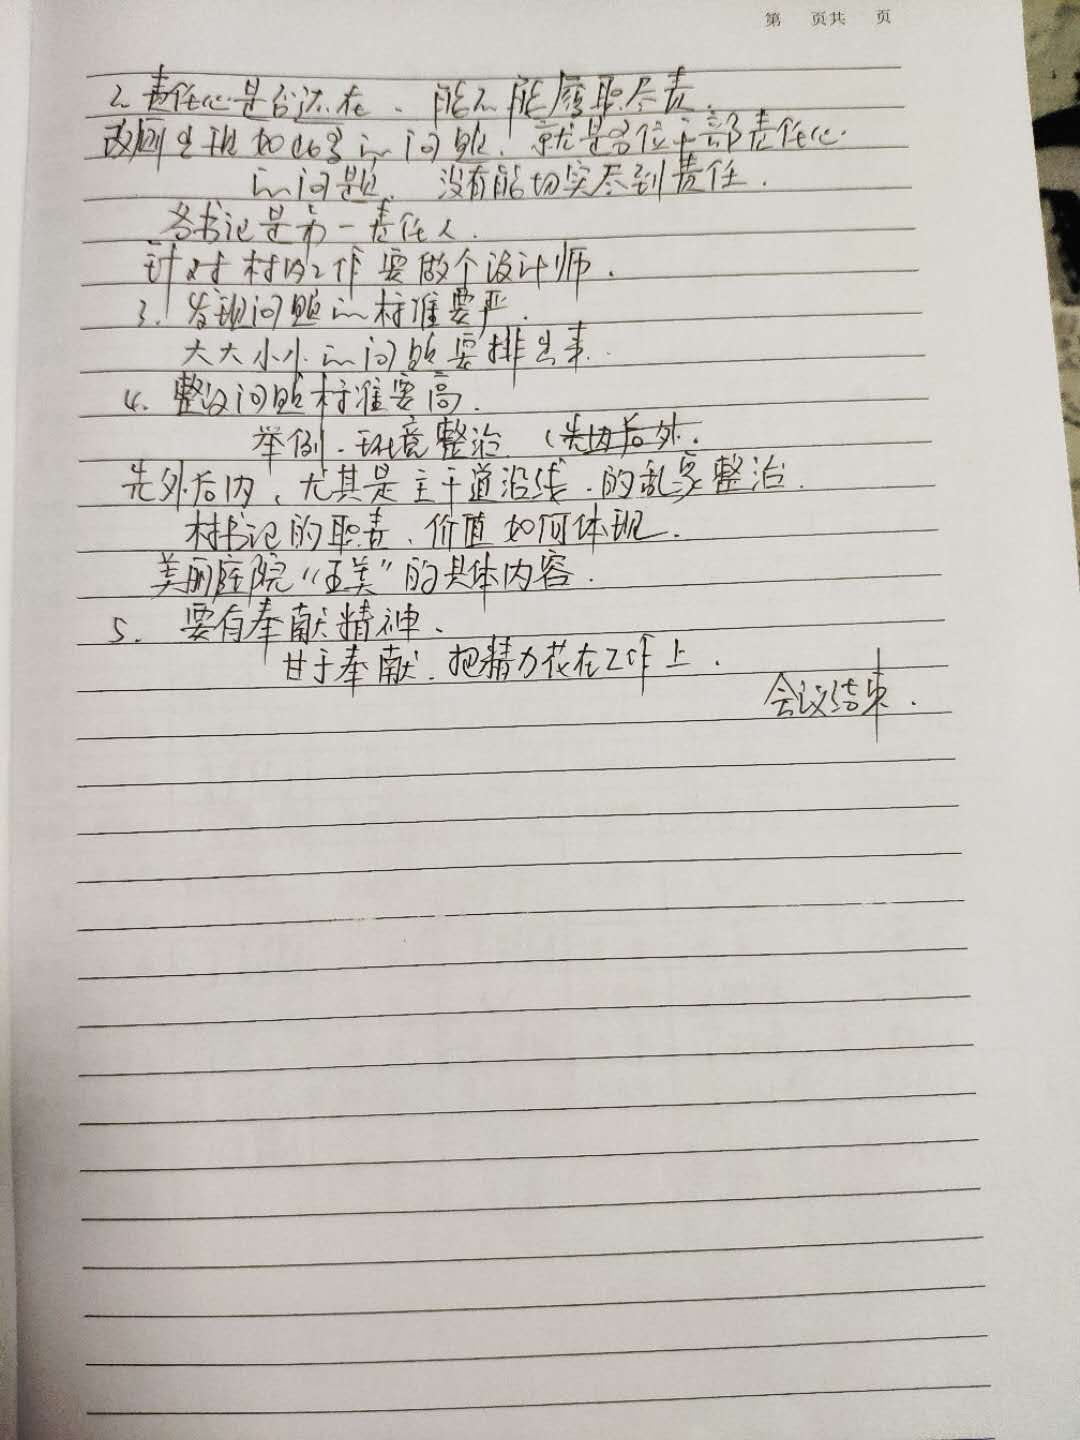 第 页共 页
2. 责任心是否还在、能不能履职尽责.
出现如此多的问题、就是各位干部责任心
的问题、没有能切实尽到责任.
各书记是第一责任人.
针对村内工作要做个设计师.
3. 发现问题的标准要严.
大大小小的问题要排出来.
4. 整改问题标准要高.
举例.环境整治.(先内后外.
先外后内、尤其是主干道沿线.的乱象整治.
村书记的职责、价值如何体现.
美丽庭院“五美”的具体内容.
5. 要有奉献精神、
甘于奉献.把精力花在工作上.
会议结束.